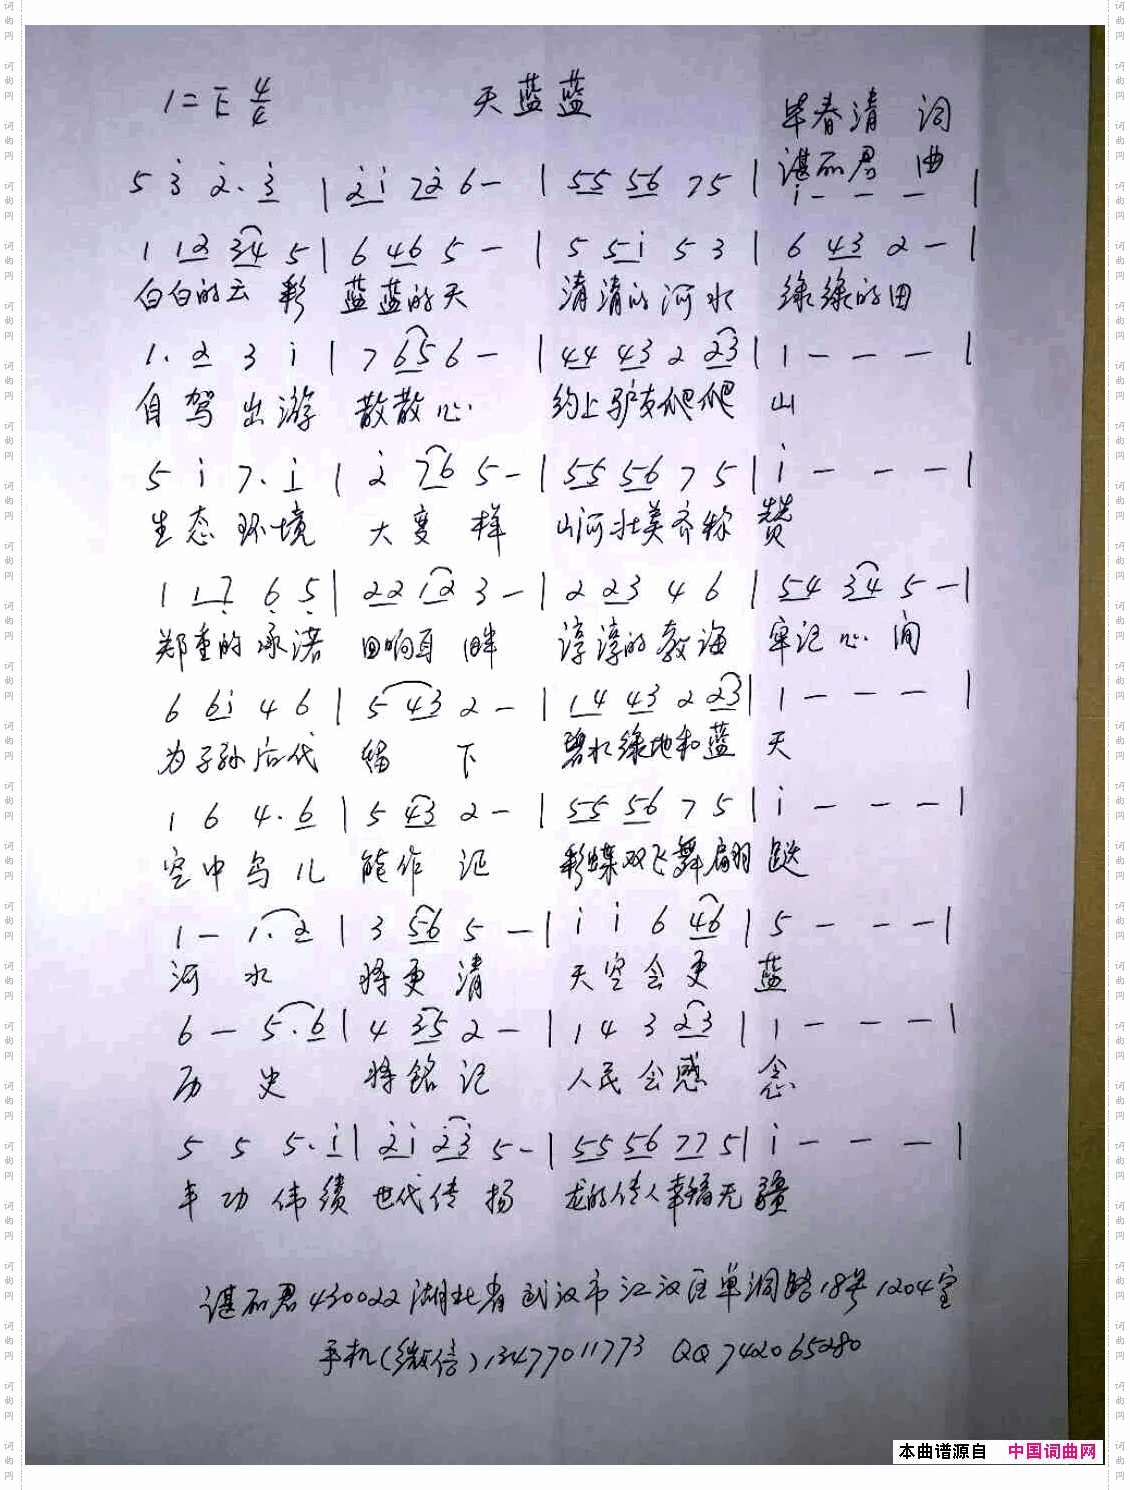 1=E 4/4
天蓝蓝
毕春清 词
谌丽君 曲
5 3̇ 2̇. 3̇ | 2̇ 1̇ 7 2̇ 6 - | 5 5 5 6 7 5 | 1̇ - - - |
1 1 2 3 4 5 | 6 4 6 5 - | 5 5 1̇ 5 3 | 6 4 3 2 - |
白白的云 彩 蓝蓝的天 清清的河水 绿绿的田
1. 2 3 1̇ | 7 6 5 6 - | 4 4 4 3 2 2 3 | 1 - - - |
自驾出游 散散心 约上驴友爬爬 山
5 1̇ 7. 1̇ | 2̇ 7 6 5 - | 5 5 5 6 7 5 | 1̇ - - - |
生态环境 大变样 山河壮美齐称 赞
1 1 7̣ 6̣ 5̣ | 2 2 1 2 3 - | 2 2 3 4 6 | 5 4 3 4 5 - |
郑重的承诺 回响耳畔 谆谆的教诲 牢记心间
6 6 1̇ 4 6 | 5 4 3 2 - | 1 4 4 3 2 2 3 | 1 - - - |
为子孙后代 留 下 碧水绿地和蓝 天
1 6 4. 6 | 5 4 3 2 - | 5 5 5 6 7 5 | 1̇ - - - |
空中鸟儿 能作证 彩蝶双飞舞翩 跹
1 - 1. 2 | 3 5 6 5 - | 1̇ 1̇ 6 4 6 | 5 - - - |
河 水 将更清 天空会更 蓝
6 - 5. 6 | 4 3 5 2 - | 1 4 3 2 3 | 1 - - - |
历 史 将铭记 人民会感 念
5 5 5. 1̇ | 2̇ 1̇ 2̇ 3̇ 5 - | 5 5 5 6 7 7 5 | 1̇ - - - |
丰功伟绩 世代传扬 龙的传人幸福无 疆
谌丽君430022湖北省武汉市江汉区单洞路18号1204室
手机(微信)13477011773 QQ 742065280
本曲谱源自 中国词曲网